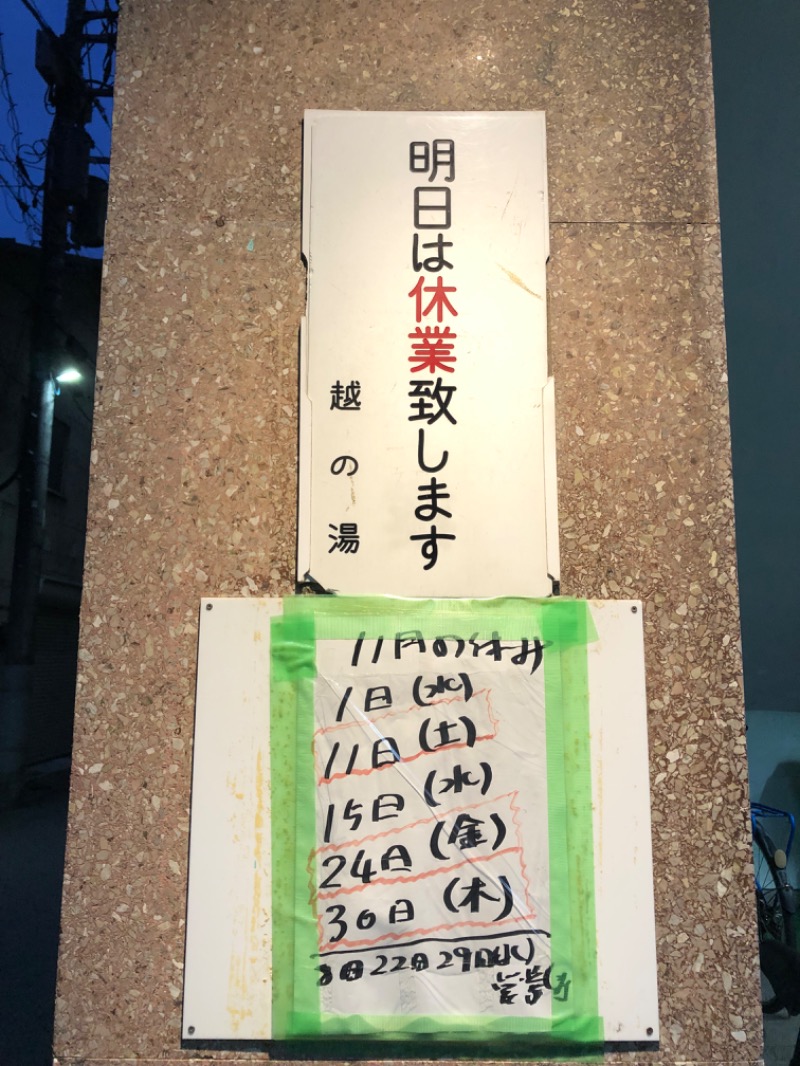 明日は休業致します
越の湯
11月の休み
1日(水)
11日(土)
15日(水)
24日(金)
30日(木)
8日22日29日(水)
営業